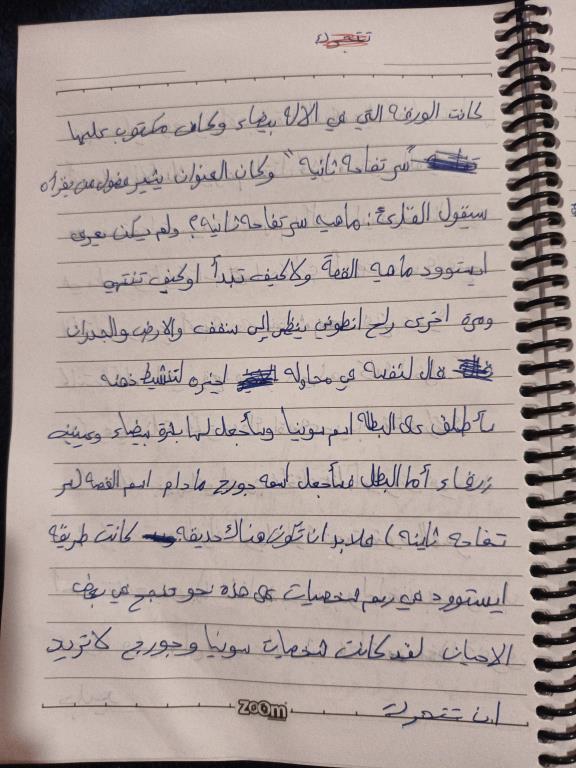 تتحرك
كانت الورقة التي في الالة بيضاء وكان مكتوب عليها
"سر تفاحة ثانية" وكان العنوان يثير فضول من يقرأه
سيقول القارئ: ماهيه سر تفاحة ثانية؟ ولم يكن يعرف
ايستوود ماهيه القصة ولاكيف تبدأ اوكيف تنتهي
ومرة اخرى راح انطوني ينظر إلى سقف والارض والجدران
قال لنفسه في محاولة اخيره لتنشيط ذهنه
سأطلق على البطلة اسم سونيا وسأجعل لها بشرة بيضاء وعينين
زرقاء أما البطل فسأجعل اسمه جورج مادام اسم القصه (سر
تفاحه ثانيه) فلابد ان تكون هناك حديقه كانت طريقة
ايستوود في رسم شخصيات على هذه نحو تنجح في بعض
الاحيان لقد كانت شخصيات سونيا وجورج لا تريد
ان تتحرك
zoom